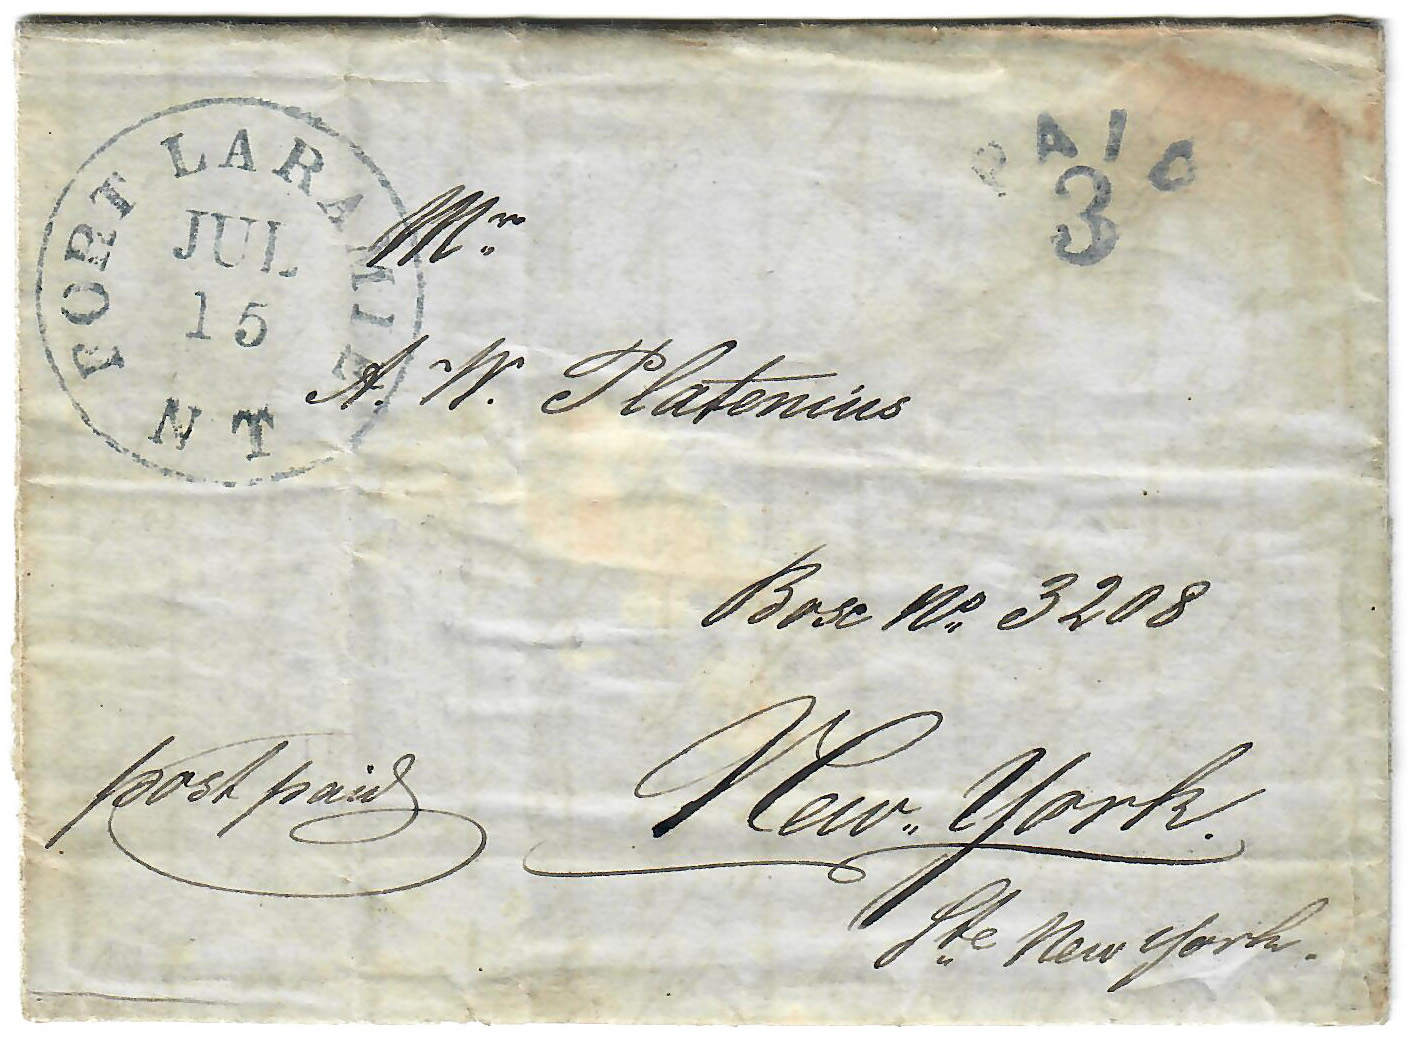 FORT LARAMIE
JUL
15
N T
PAID
3
Mr
A. W. Platenius
Box No. 3208
New York.
Ste New York.
post paid